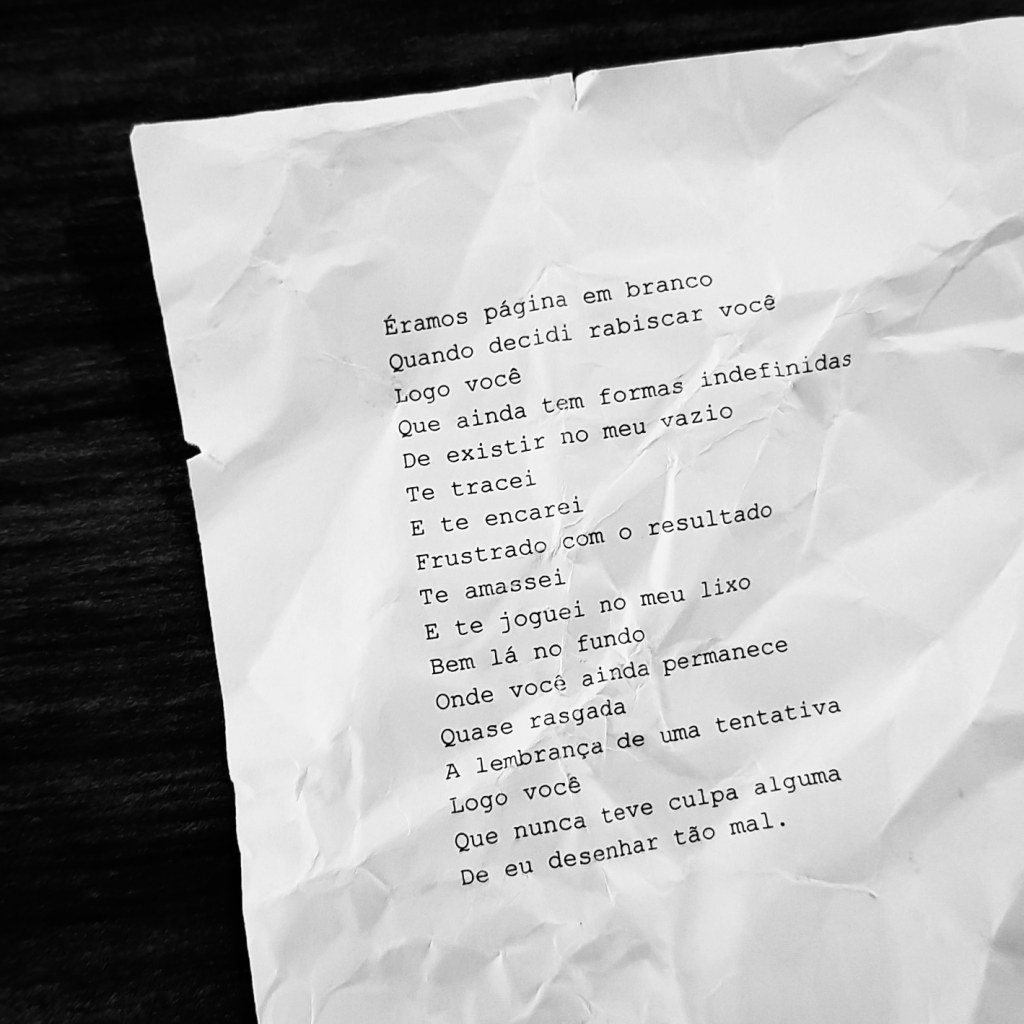 Éramos página em branco
Quando decidi rabiscar você
Logo você
Que ainda tem formas indefinidas
De existir no meu vazio
Te tracei
E te encarei
Frustrado com o resultado
Te amassei
E te joguei no meu lixo
Bem lá no fundo
Onde você ainda permanece
Quase rasgada
A lembrança de uma tentativa
Logo você
Que nunca teve culpa alguma
De eu desenhar tão mal.